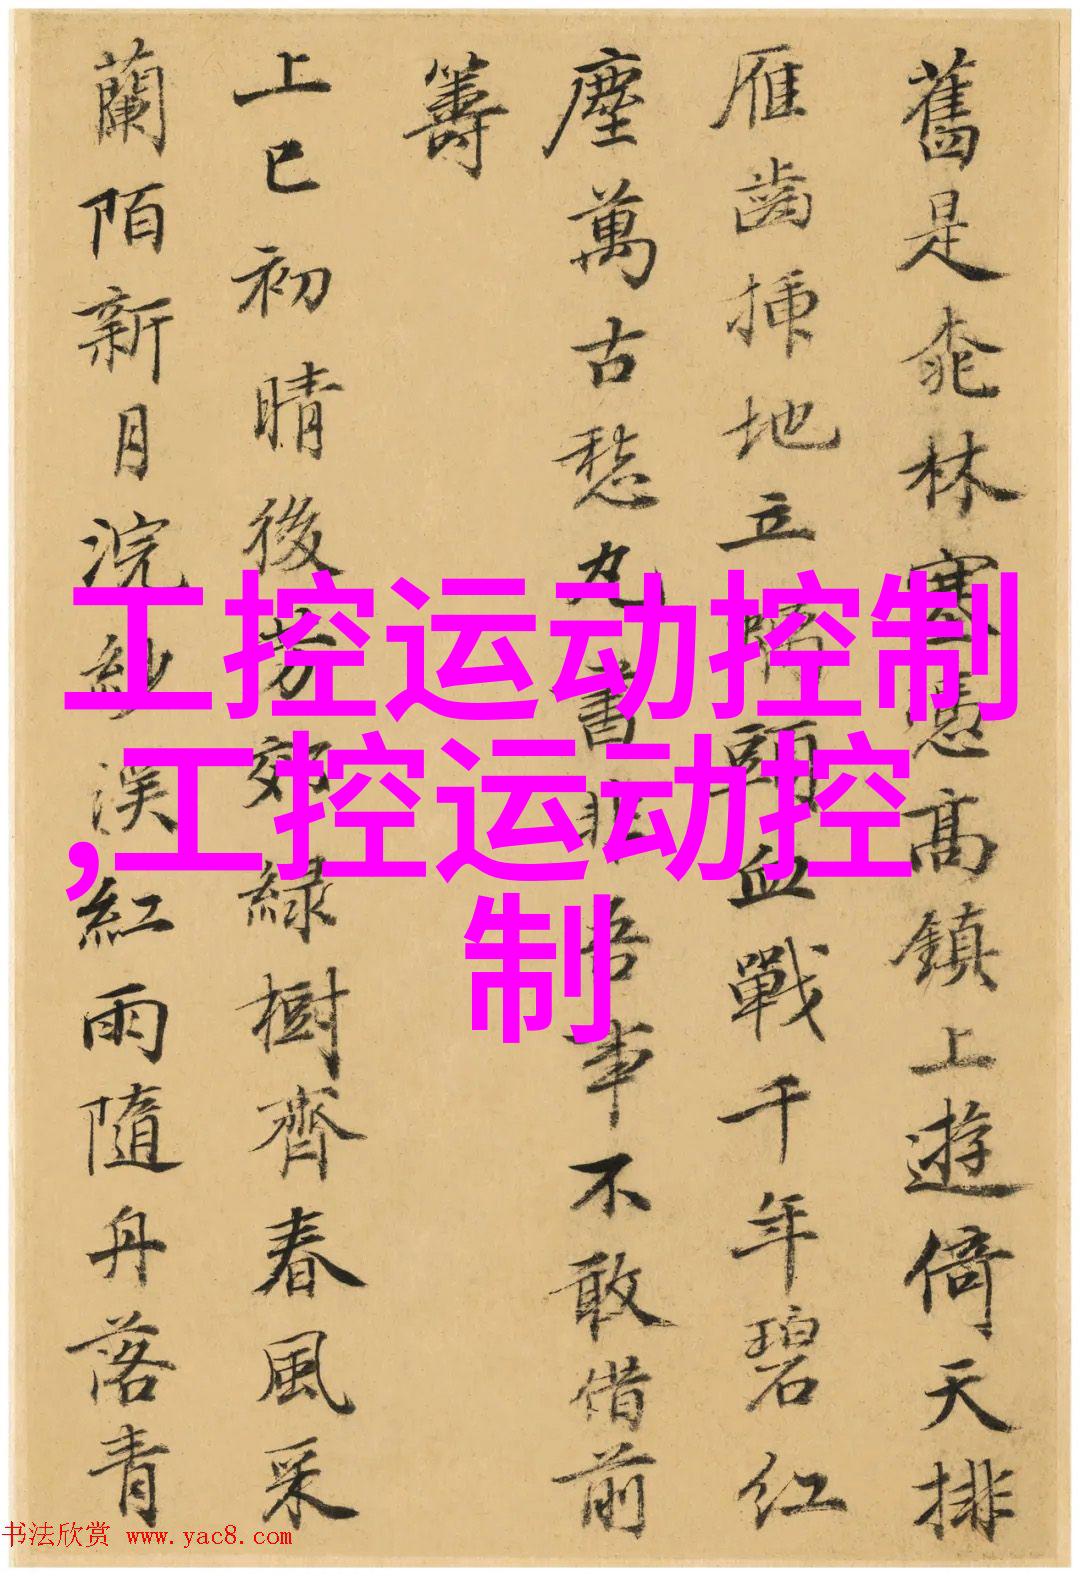 舊是桃林塞憑高鎮上遊倚天排
雁齒揷地立頭血戰千年碧红
塵萬古愁丸書吾事不敢借前
籌
上巳初晴後芳郊緑樹齊春風采
蘭陌新月浣紗溪紅雨隨舟落青
工控运动控制
,工控运动控
制
书法欣赏 www.yac8.com